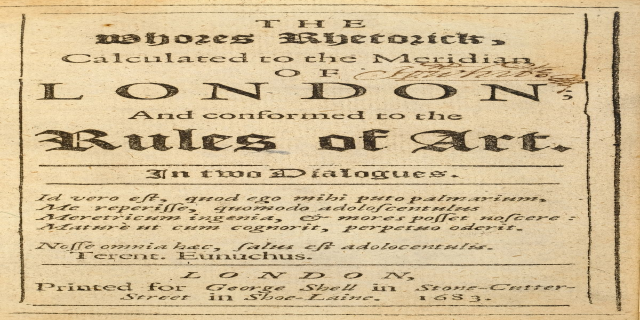 THE
Whores Rhetorick,
Calculated to the Meridian
OF
LONDON;
And conformed to the
Rules of Art.
In two Dialogues.
Id vero est, quod ego mihi puto palmarium,
Me reperisse, quomodo adoloscentulus
Meretricum ingenia, & mores posset noscere:
Mature ut cum cognorit, perpetuo oderit.
Nosse omnia hæc, salus est adolocentulis.
Terent. Eunuchus.
LONDON,
Printed for George Shell in Stone-Cutter-
Street in Shoe-Laine. 1683.